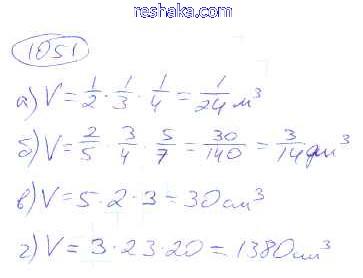 reshaka.com
1051
а) V = 1/2 · 1/3 · 1/4 = 1/24 м³
б) V = 2/5 · 3/4 · 5/7 = 30/140 = 3/14 дм³
в) V = 5 · 2 · 3 = 30 см³
г) V = 3 · 23 · 20 = 1380 см³